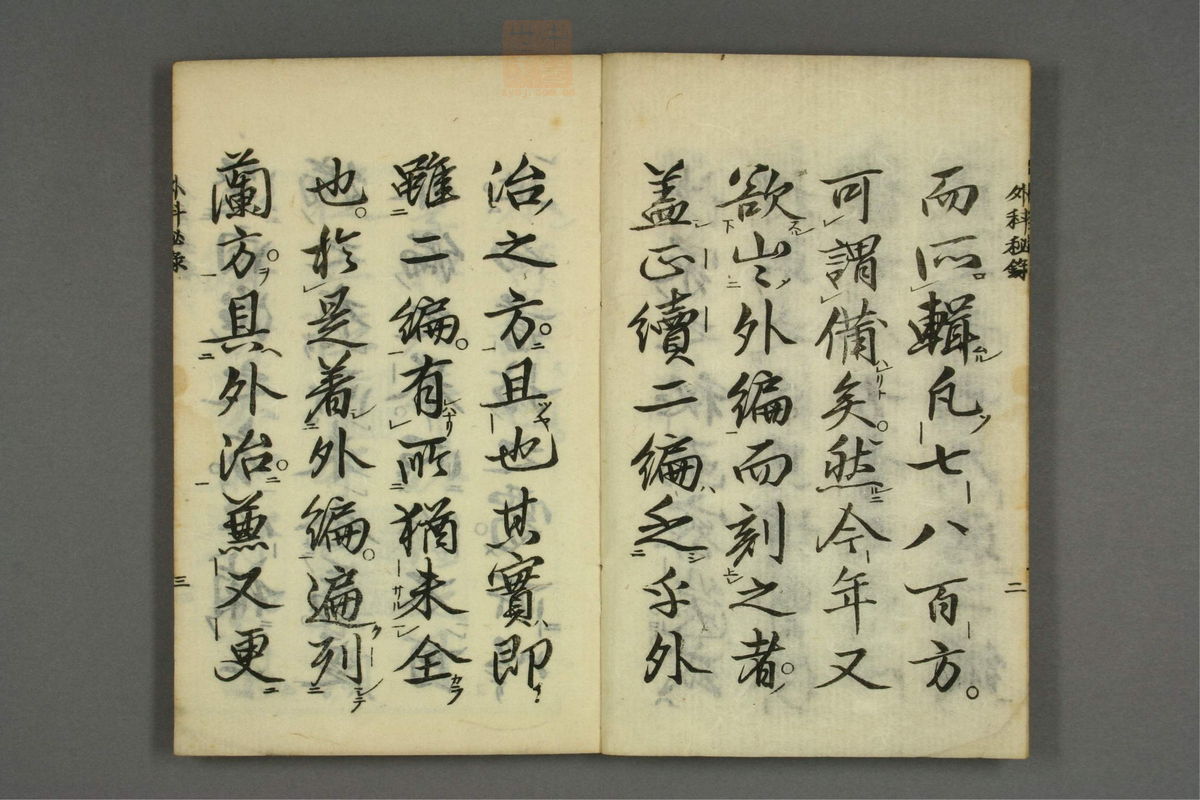 外科秘録
而所輯凡七八百方。
可謂備矣。然今年又
欲出外編而刻之者。
蓋正續二編乏乎外
二
治之方。且也其實即
雖二編。有所猶未全
也。於是着外編。遍列
蘭方。具外治。兼又更
外科秘录
三